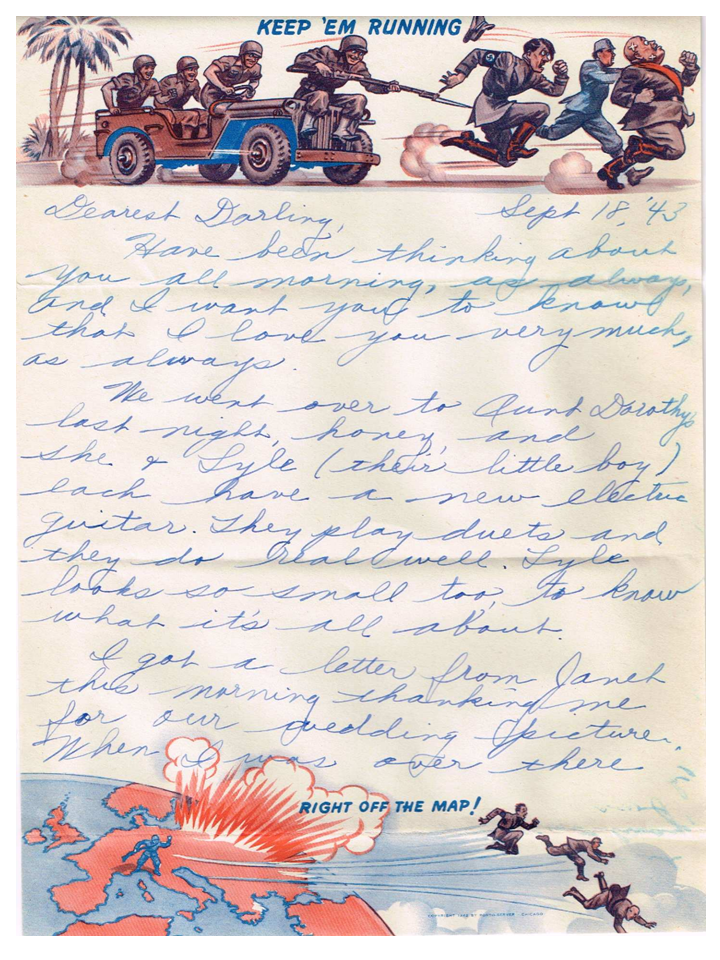 KEEP 'EM RUNNING
Dearest Darling, Sept 18, '43
Have been thinking about
you all morning, as always,
and I want you to know
that I love you very much,
as always.
We went over to Aunt Dorothys
last night, honey, and
she & Lyle (their little boy)
each have a new electric
guitar. They play duets and
they do real well. Lyle
looks so small too, to know
what it's all about.
I got a letter from Janet
this morning thanking me
for our wedding picture.
When I was over there
RIGHT OFF THE MAP!
COPYRIGHT 1942 BY CHICAGO